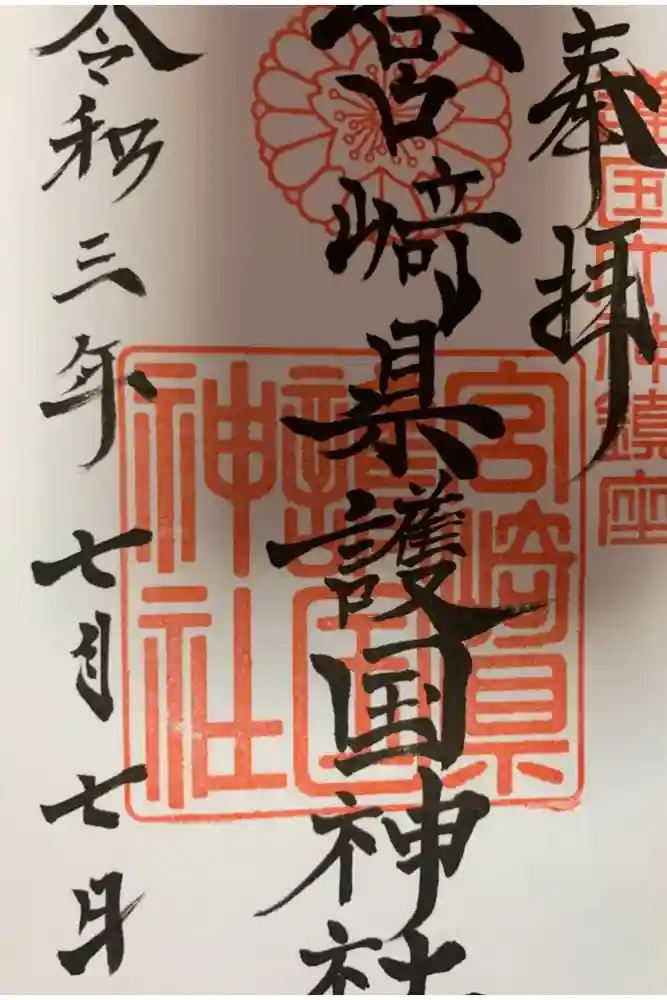 奉拝
護国之神鎮座
宮崎県護国神社
宮崎県
護国
神社
令和三年七月七日